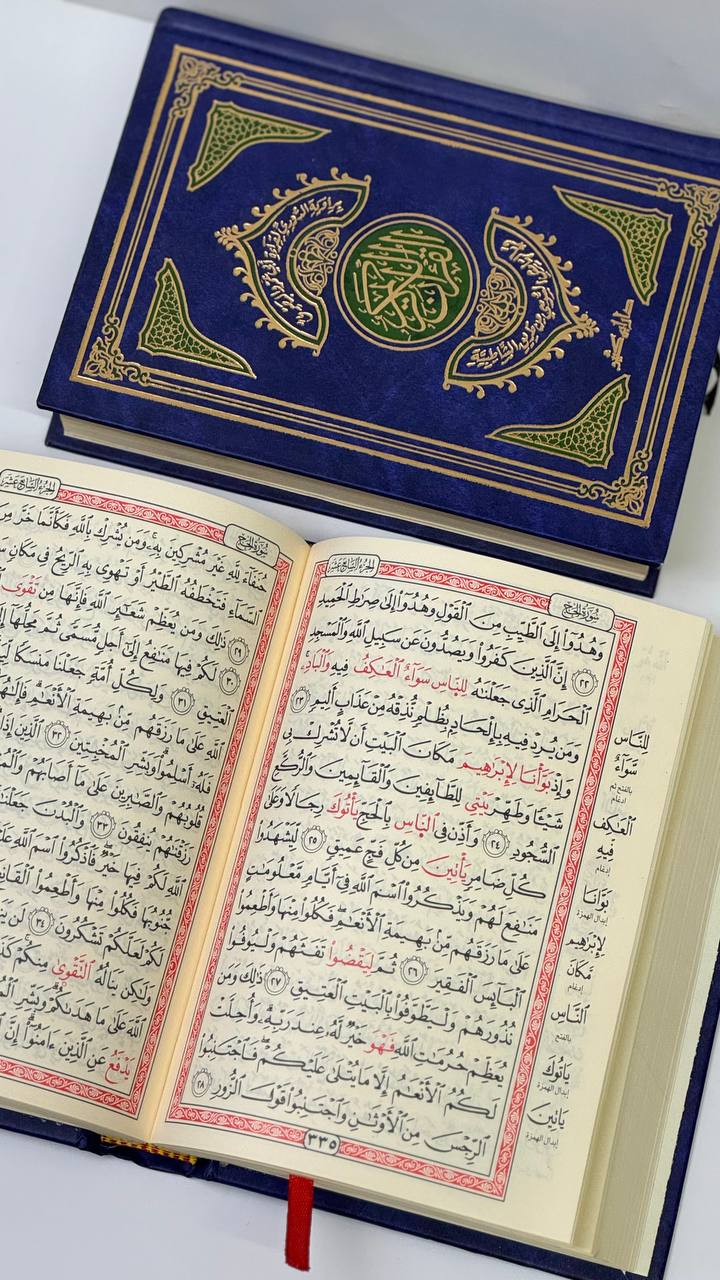 القرآن الكريم
من طريق الشاطبية
الجزء السابع عشر
سورة الحج
وَهُدُوٓا۟ إِلَى ٱلطَّيِّبِ مِنَ ٱلْقَوْلِ وَهُدُوٓا۟ إِلَىٰ صِرَٰطِ ٱلْحَمِيدِ
٢٢ إِنَّ ٱلَّذِينَ كَفَرُوا۟ وَيَصُدُّونَ عَن سَبِيلِ ٱللَّهِ وَٱلْمَسْجِدِ
ٱلْحَرَامِ ٱلَّذِى جَعَلْنَٰهُ لِلنَّاسِ سَوَآءٌ ٱلْعَٰكِفُ فِيهِ وَٱلْبَادِۦ
وَمَن يُرِدْ فِيهِ بِإِلْحَادٍۭ بِظُلْمٍ نُّذِقْهُ مِنْ عَذَابٍ أَلِيمٍ ٢٣
وَإِذْ بَوَّانَا لِإِبْرَٰهِيمَ مَكَانَ ٱلْبَيْتِ أَن لَّا تُشْرِكْ بِى
شَيْـًٔا وَطَهِّرْ بَيْتِى لِلطَّآئِفِينَ وَٱلْقَآئِمِينَ وَٱلرُّكَّعِ
ٱلسُّجُودِ ٢٤ وَأَذِّن فِى ٱلنَّاسِ بِٱلْحَجِّ يَاتُوكَ رِجَالًا وَعَلَىٰ
كُلِّ ضَامِرٍ يَاتِينَ مِن كُلِّ فَجٍّ عَمِيقٍ ٢٥ لِّيَشْهَدُوا۟
مَنَٰفِعَ لَهُمْ وَيَذْكُرُوا۟ ٱسْمَ ٱللَّهِ فِىٓ أَيَّامٍ مَّعْلُومَٰتٍ
عَلَىٰ مَا رَزَقَهُم مِّنۢ بَهِيمَةِ ٱلْأَنْعَٰمِ فَكُلُوا۟ مِنْهَا وَأَطْعِمُوا۟
ٱلْبَآئِسَ ٱلْفَقِيرَ ٢٦ ثُمَّ لِيَقْضُوا۟ تَفَثَهُمْ وَلْيُوفُوا۟
نُذُورَهُمْ وَلْيَطَّوَّفُوا۟ بِٱلْبَيْتِ ٱلْعَتِيقِ ٢٧ ذَٰلِكَ وَمَن
يُعَظِّمْ حُرُمَٰتِ ٱللَّهِ فَهْوَ خَيْرٌ لَّهُۥ عِندَ رَبِّهِۦ وَأُحِلَّتْ
لَكُمُ ٱلْأَنْعَٰمُ إِلَّا مَا يُتْلَىٰ عَلَيْكُمْ فَٱجْتَنِبُوا۟
ٱلرِّجْسَ مِنَ ٱلْأَوْثَٰنِ وَٱجْتَنِبُوا۟ قَوْلَ ٱلزُّورِ ٢٨
٣٣٥
لِلنَّاس
سَوَآءٌ
بالفتح ثم
إدغام
ٱلْعَٰكِف
فِيهِ
إدغام
بَوَّانَا
إبدال الهمزة
لِإِبْرَٰهِيم
مَّكَانَ
إدغام
ٱلنَّاسِ
بالفتح
يَاتُوكَ
إبدال الهمزة
يَاتِينَ
إبدال الهمزة
الجزء السابع عشر
سورة الحج
حُنَفَآءَ لِلَّهِ غَيْرَ مُشْرِكِينَ بِهِۦ وَمَن يُشْرِكْ بِٱللَّهِ فَكَأَنَّمَا خَرَّ مِنَ
ٱلسَّمَآءِ فَتَخْطَفُهُ ٱلطَّيْرُ أَوْ تَهْوِى بِهِ ٱلرِّيحُ فِى مَكَانٍ
٢٩ ذَٰلِكَ وَمَن يُعَظِّمْ شَعَٰٓئِرَ ٱللَّهِ فَإِنَّهَا مِن تَقْوَى
٣٠ لَكُمْ فِيهَا مَنَٰفِعُ إِلَىٰٓ أَجَلٍ مُّسَمًّى ثُمَّ مَحِلُّهَآ
ٱلْعَتِيقِ ٣١ وَلِكُلِّ أُمَّةٍ جَعَلْنَا مَنسَكًا
ٱللَّهِ عَلَىٰ مَا رَزَقَهُم مِّنۢ بَهِيمَةِ ٱلْأَنْعَٰمِ
فَلَهُۥٓ أَسْلِمُوا۟ وَبَشِّرِ ٱلْمُخْبِتِينَ ٣٢ ٱلَّذِينَ إِذَا
قُلُوبُهُمْ وَٱلصَّٰبِرِينَ عَلَىٰ مَآ أَصَابَهُمْ
رَزَقْنَٰهُمْ يُنفِقُونَ ٣٣ وَٱلْبُدْنَ جَعَلْنَٰهَا
ٱللَّهِ لَكُمْ فِيهَا خَيْرٌ فَٱذْكُرُوا۟ ٱسْمَ ٱللَّهِ
جُنُوبُهَا فَكُلُوا۟ مِنْهَا وَأَطْعِمُوا۟
لَكُمْ لَعَلَّكُمْ تَشْكُرُونَ ٣٤ لَن
وَلَٰكِن يَنَالُهُ ٱلتَّقْوَىٰ مِنكُمْ
ٱللَّهَ عَلَىٰ مَا هَدَىٰكُمْ وَبَشِّرِ
يَدْفَعُ عَنِ ٱلَّذِينَ ءَامَنُوٓا۟ إِنَّ